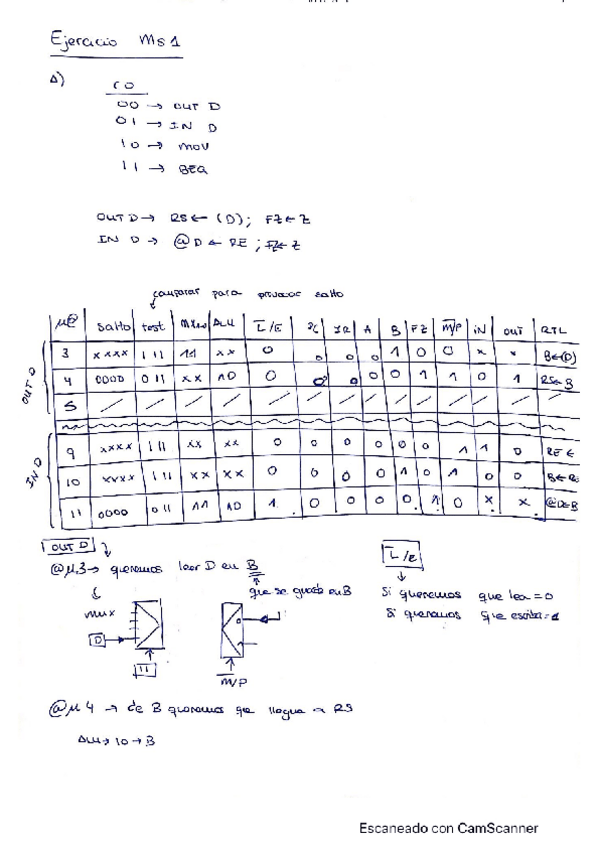 Ejercicio Ms1
A)
CO
00 → OUT D
01 → IN D
10 → MOV
11 → BEQ
OUT D → RS ← (D); FZ ← Z
IN D → @D ← RE; FZ ← Z
comparar para provocar salto
μ@ Salto test ALU L/E PC IR A B FZ M/P IN OUT RTL
OUT D
3 xxxx 111 11 xx 0 0 0 0 1 0 0 x x B←(D)
4 0000 011 xx 10 0 0 0 0 0 1 1 0 1 RS←B
5 / / / / / / / / / / / / / /
IN D
9 xxxx 111 xx xx 0 0 0 0 0 0 1 1 0 RE ←
10 xxxx 111 xx xx 0 0 0 0 1 0 1 0 0 B←RE
11 0000 011 11 10 1 0 0 0 0 1 0 x x @D←B
OUT D
@μ3 → queremos leer D en B
que se guarde en B
mux
D
11
0
M/P
L/E
Si queremos que lea = 0
Si queremos que escriba = 1
@μ4 → de B queremos que llegue a RS
ALU → 10 → B
Escaneado con CamScanner